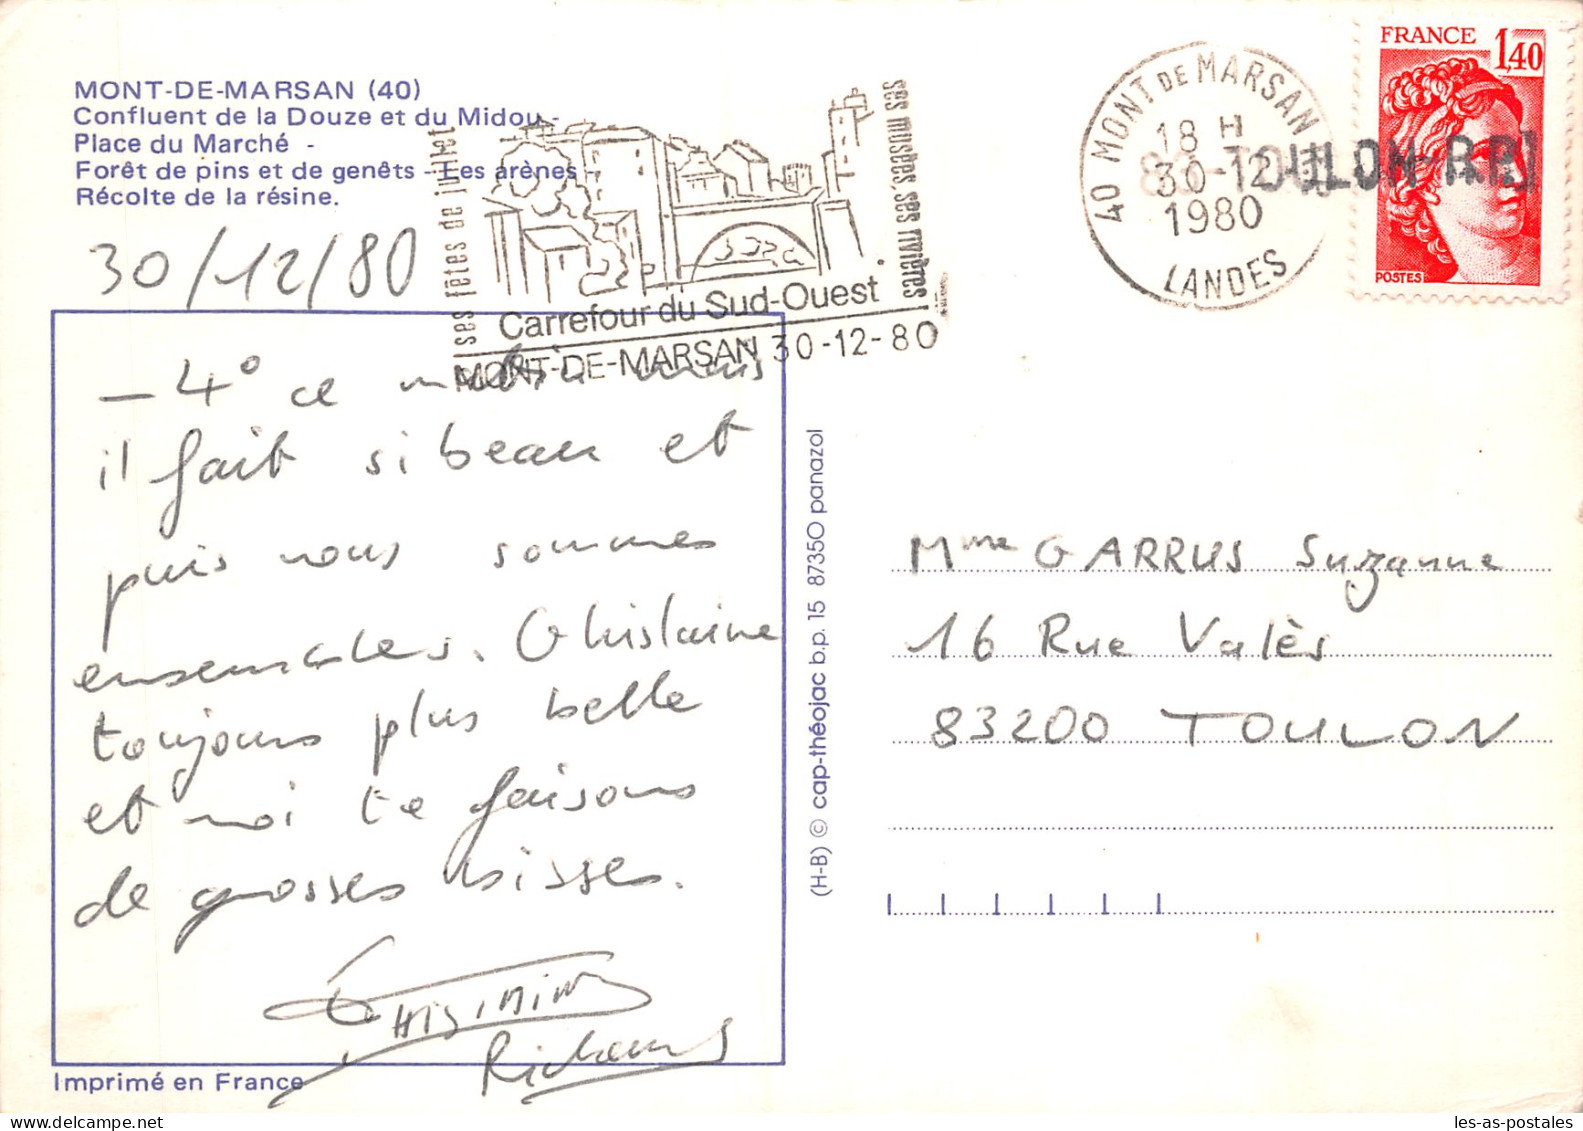 MONT-DE-MARSAN (40)
Confluent de la Douze et du Midou -
Place du Marché -
Forêt de pins et de genêts - Les arènes -
Récolte de la résine.
30/12/80
- 4° ce matin mais
il fait si beau et
puis nous sommes
ensembles. Ghislaine
toujours plus belle
et moi te faisons
de grosses bisses.
Richard
Imprimé en France
ses fêtes de juillet
ses musées, ses rivières
Carrefour du Sud-Ouest
MONT-DE-MARSAN 30-12-80
40 MONT DE MARSAN
18 H
30-12
1980
LANDES
TOULON R.P.
FRANCE 1,40
POSTES
(H-B) © cap-théojac b.p. 15 87350 panazol
Mme GARRUS Suzanne
16 Rue Valès
83200 TOULON
les-as-postales